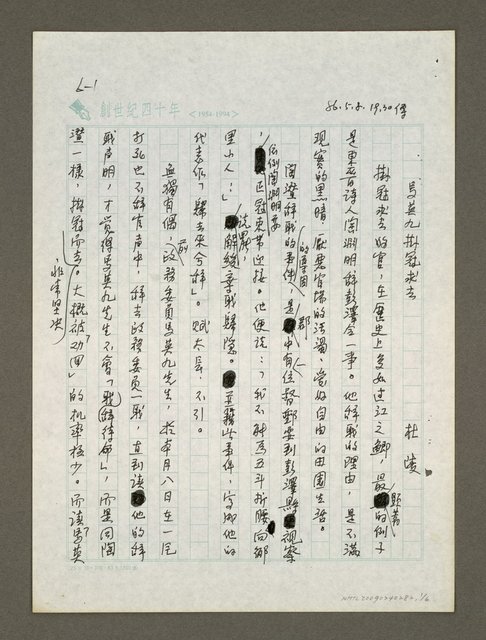 6-1
創世紀四十年 <1954-1994>
86.5.8. 19,30傳
馬英九掛冠求去
杜陵
掛冠求去的官,在歷史上多如過江之鯽,最耶著的例子
是東晉詩人陶淵明辭彭澤令一事。他辭職的理由,是不滿
現實的黑暗,厭惡官場的污濁,愛好自由的田園生活。
陶澄辭職的事件的原因,是郡中有一位督郵要到彭澤縣視察
,依例陶淵明要正冠束帶迎接。他便說:「我不能為五斗折腰向鄉
里小人;」說罷,解綬辭職歸隱。並藉此事件,寫成他的
代表作「歸去來兮辭」。賦太長,不引。
無獨有偶,前政務委員馬英九先生,於本月八日在一片
打死也不辭官聲中,辭去政務委員一職,直到讀他的辭
職聲明,才覺得馬英九先生不會「戰時待命」,而是同陶
潛一樣,掛冠而去。非常堅決
大概被「功回」的機率極少。而讀馬英
NMTL20090240282, 1/6